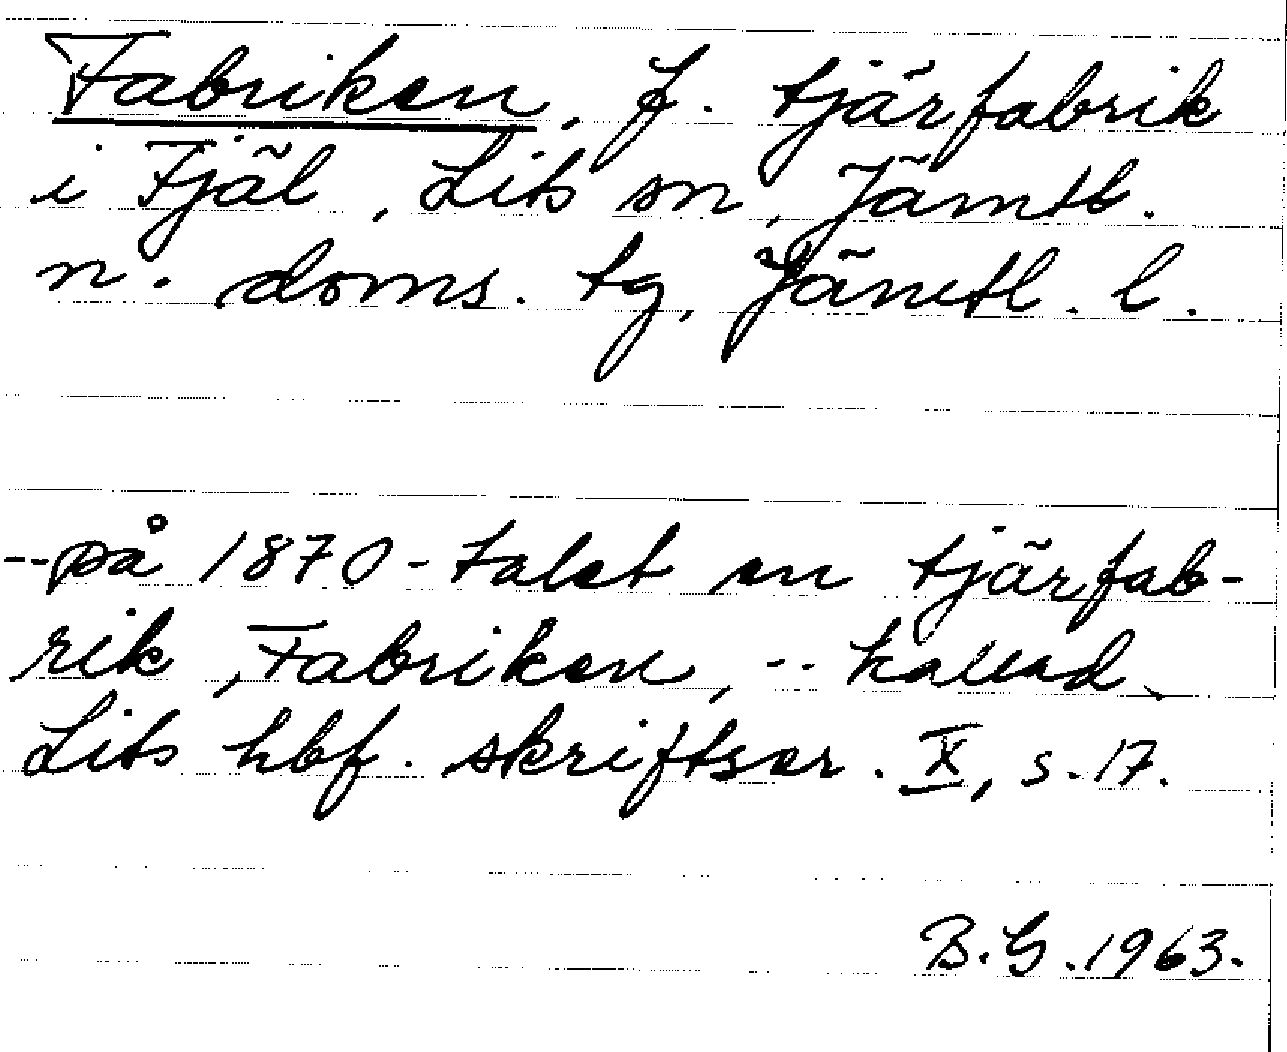 Fabriken, f. tjärfabrik
i Fjäl, Lits sn, Jämtl.
n. doms. tg, Jämtl. l.
-- på 1870-talet en tjärfab-
rik, Fabriken, -- kallad
Lits hbf. skriftser. X, s. 17.
B.G. 1963.